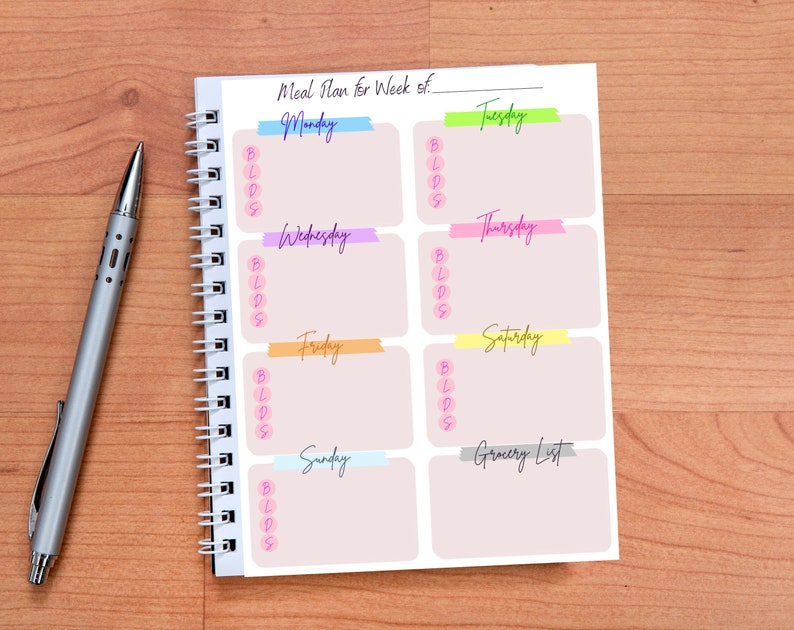 Meal Plan for Week of:
Monday
B
L
D
S
Tuesday
B
L
D
S
Wednesday
B
L
D
S
Thursday
B
L
D
S
Friday
B
L
D
S
Saturday
B
L
D
S
Sunday
B
L
D
S
Grocery List